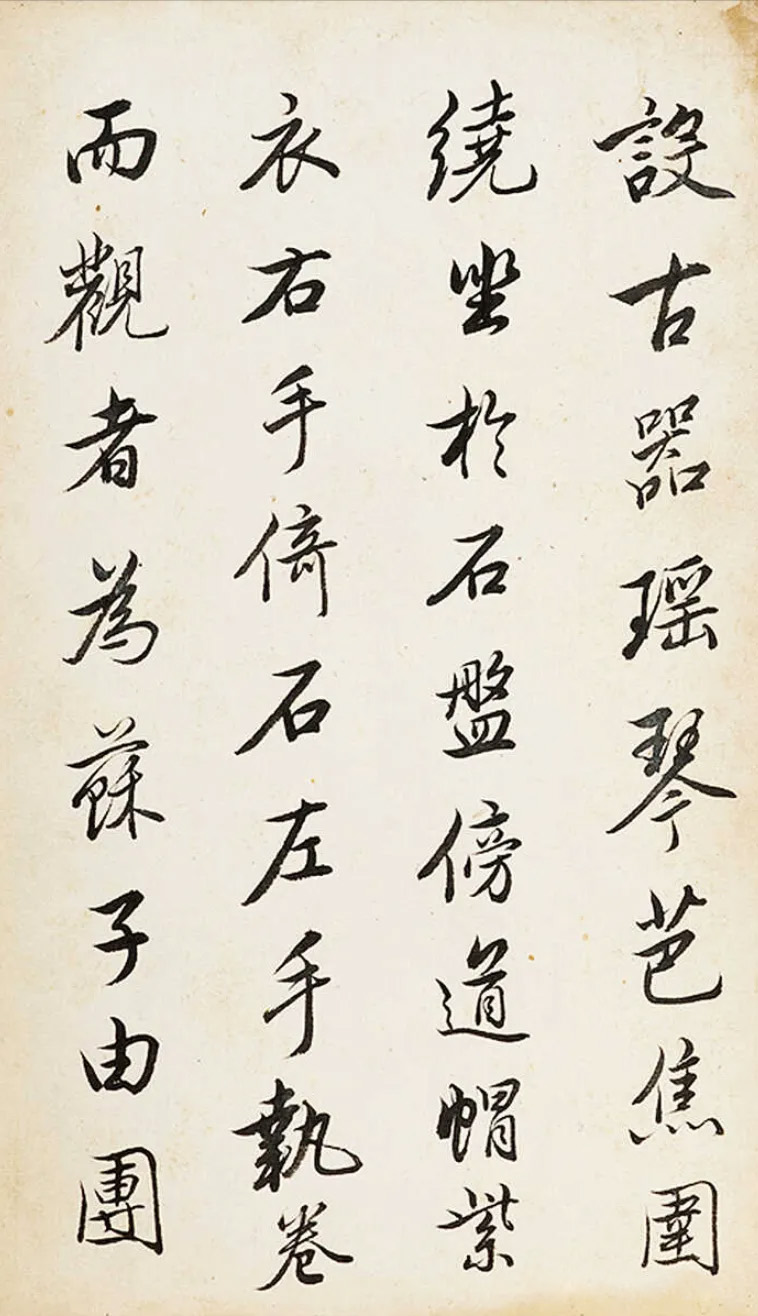 設古器瑶琴芭焦圍
繞坐於石盤傍道帽紫
衣右手倚石左手執卷
而觀者為蘇子由團